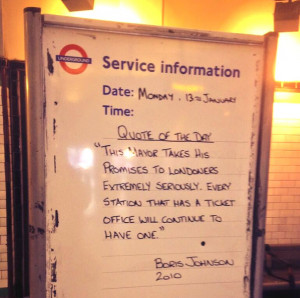 UNDERGROUND
Service information
Date: MONDAY, 13TH JANUARY
Time:
QUOTE OF THE DAY
"THIS MAYOR TAKES HIS
PROMISES TO LONDONERS
EXTREMELY SERIOUSLY. EVERY
STATION THAT HAS A TICKET
OFFICE WILL CONTINUE TO
HAVE ONE."
BORIS JOHNSON
2010